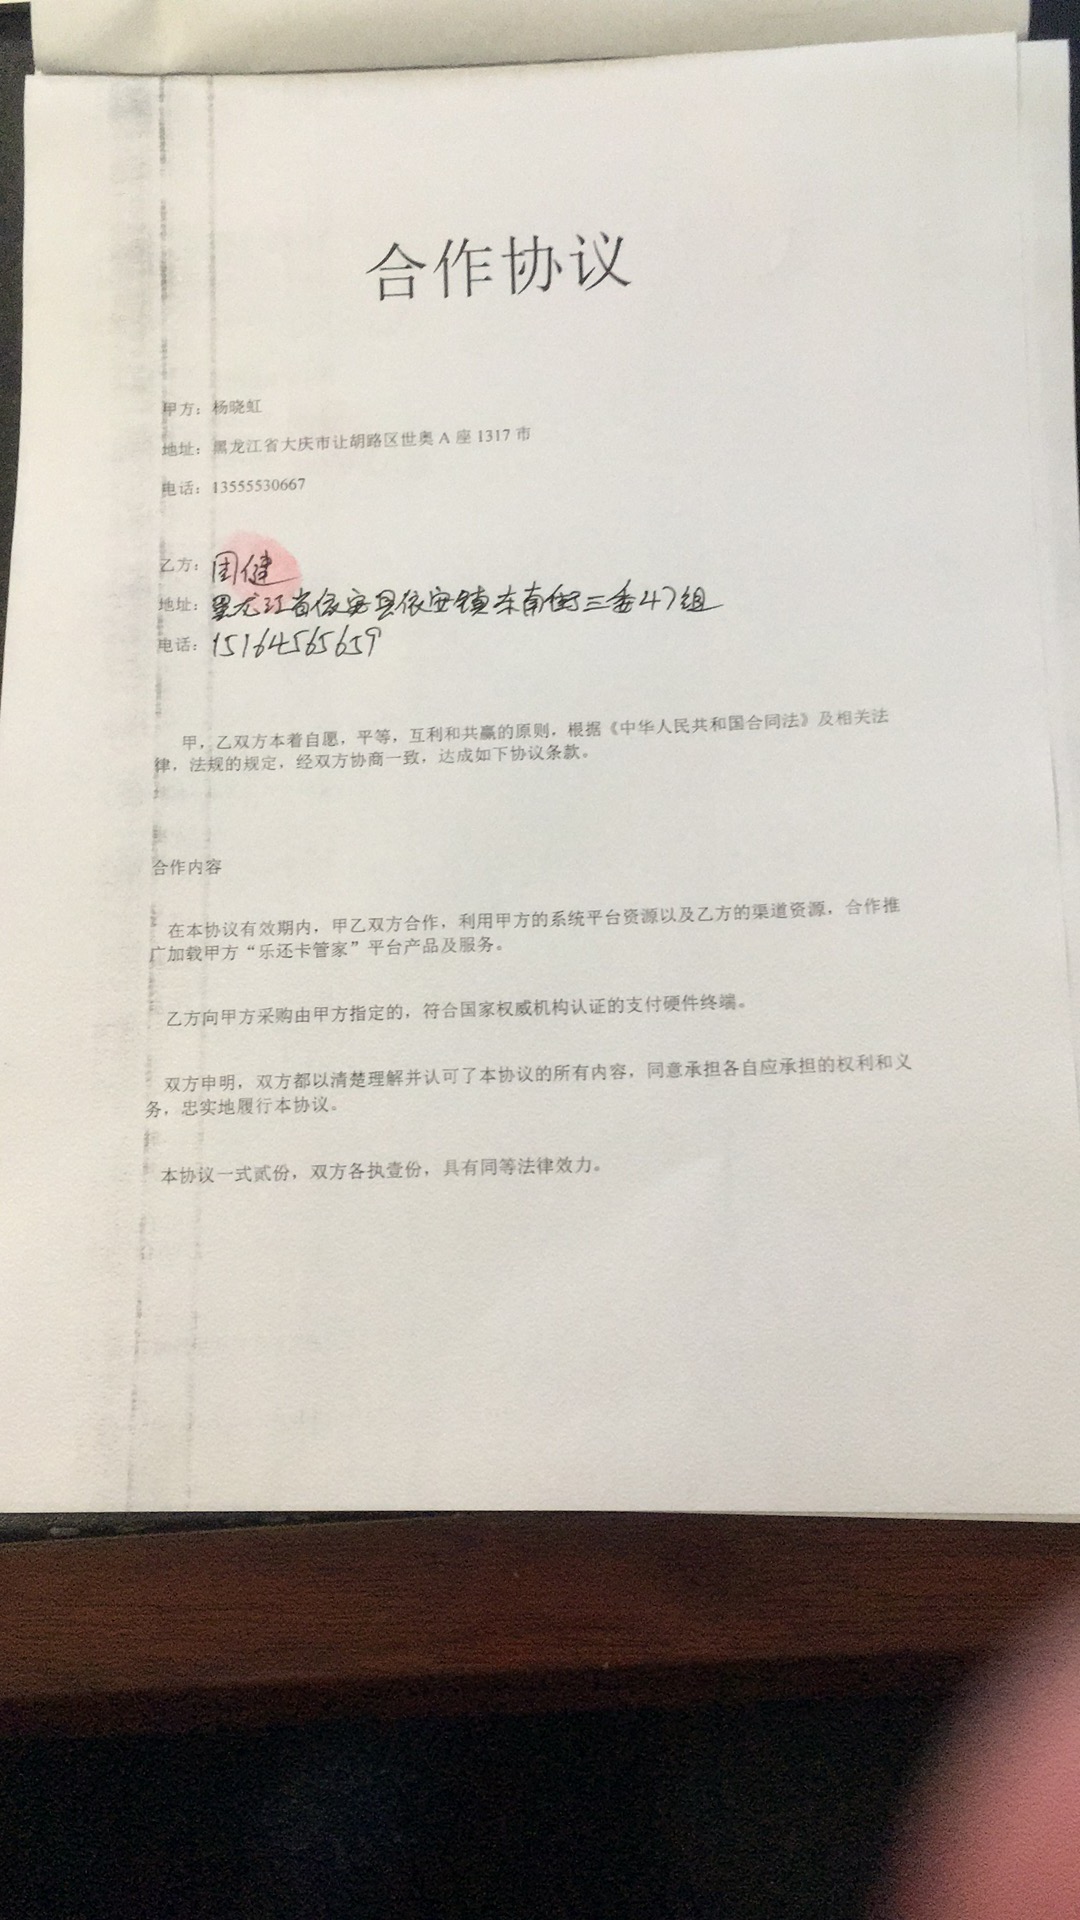 合作协议
甲方：杨晓虹
地址：黑龙江省大庆市让胡路区世奥 A 座 1317 市
电话：13555530667
乙方：周健
地址：黑龙江省依安县依安镇东南街三委47组
电话：15164565659
甲，乙双方本着自愿，平等，互利和共赢的原则，根据《中华人民共和国合同法》及相关法
律，法规的规定，经双方协商一致，达成如下协议条款。
合作内容
在本协议有效期内，甲乙双方合作，利用甲方的系统平台资源以及乙方的渠道资源，合作推
广加载甲方“乐还卡管家”平台产品及服务。
乙方向甲方采购由甲方指定的，符合国家权威机构认证的支付硬件终端。
双方申明，双方都以清楚理解并认可了本协议的所有内容，同意承担各自应承担的权利和义
务，忠实地履行本协议。
本协议一式贰份，双方各执壹份，具有同等法律效力。